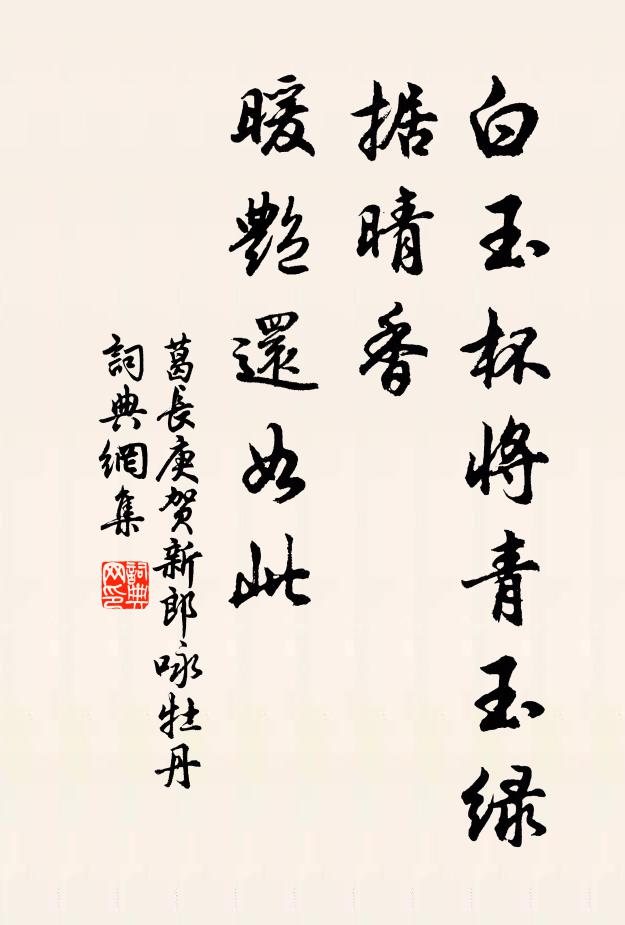 白玉杯将青玉緑
据晴香
暖艷還如此
葛長庚賀新郎咏牡丹
詞典網集
詞典网印